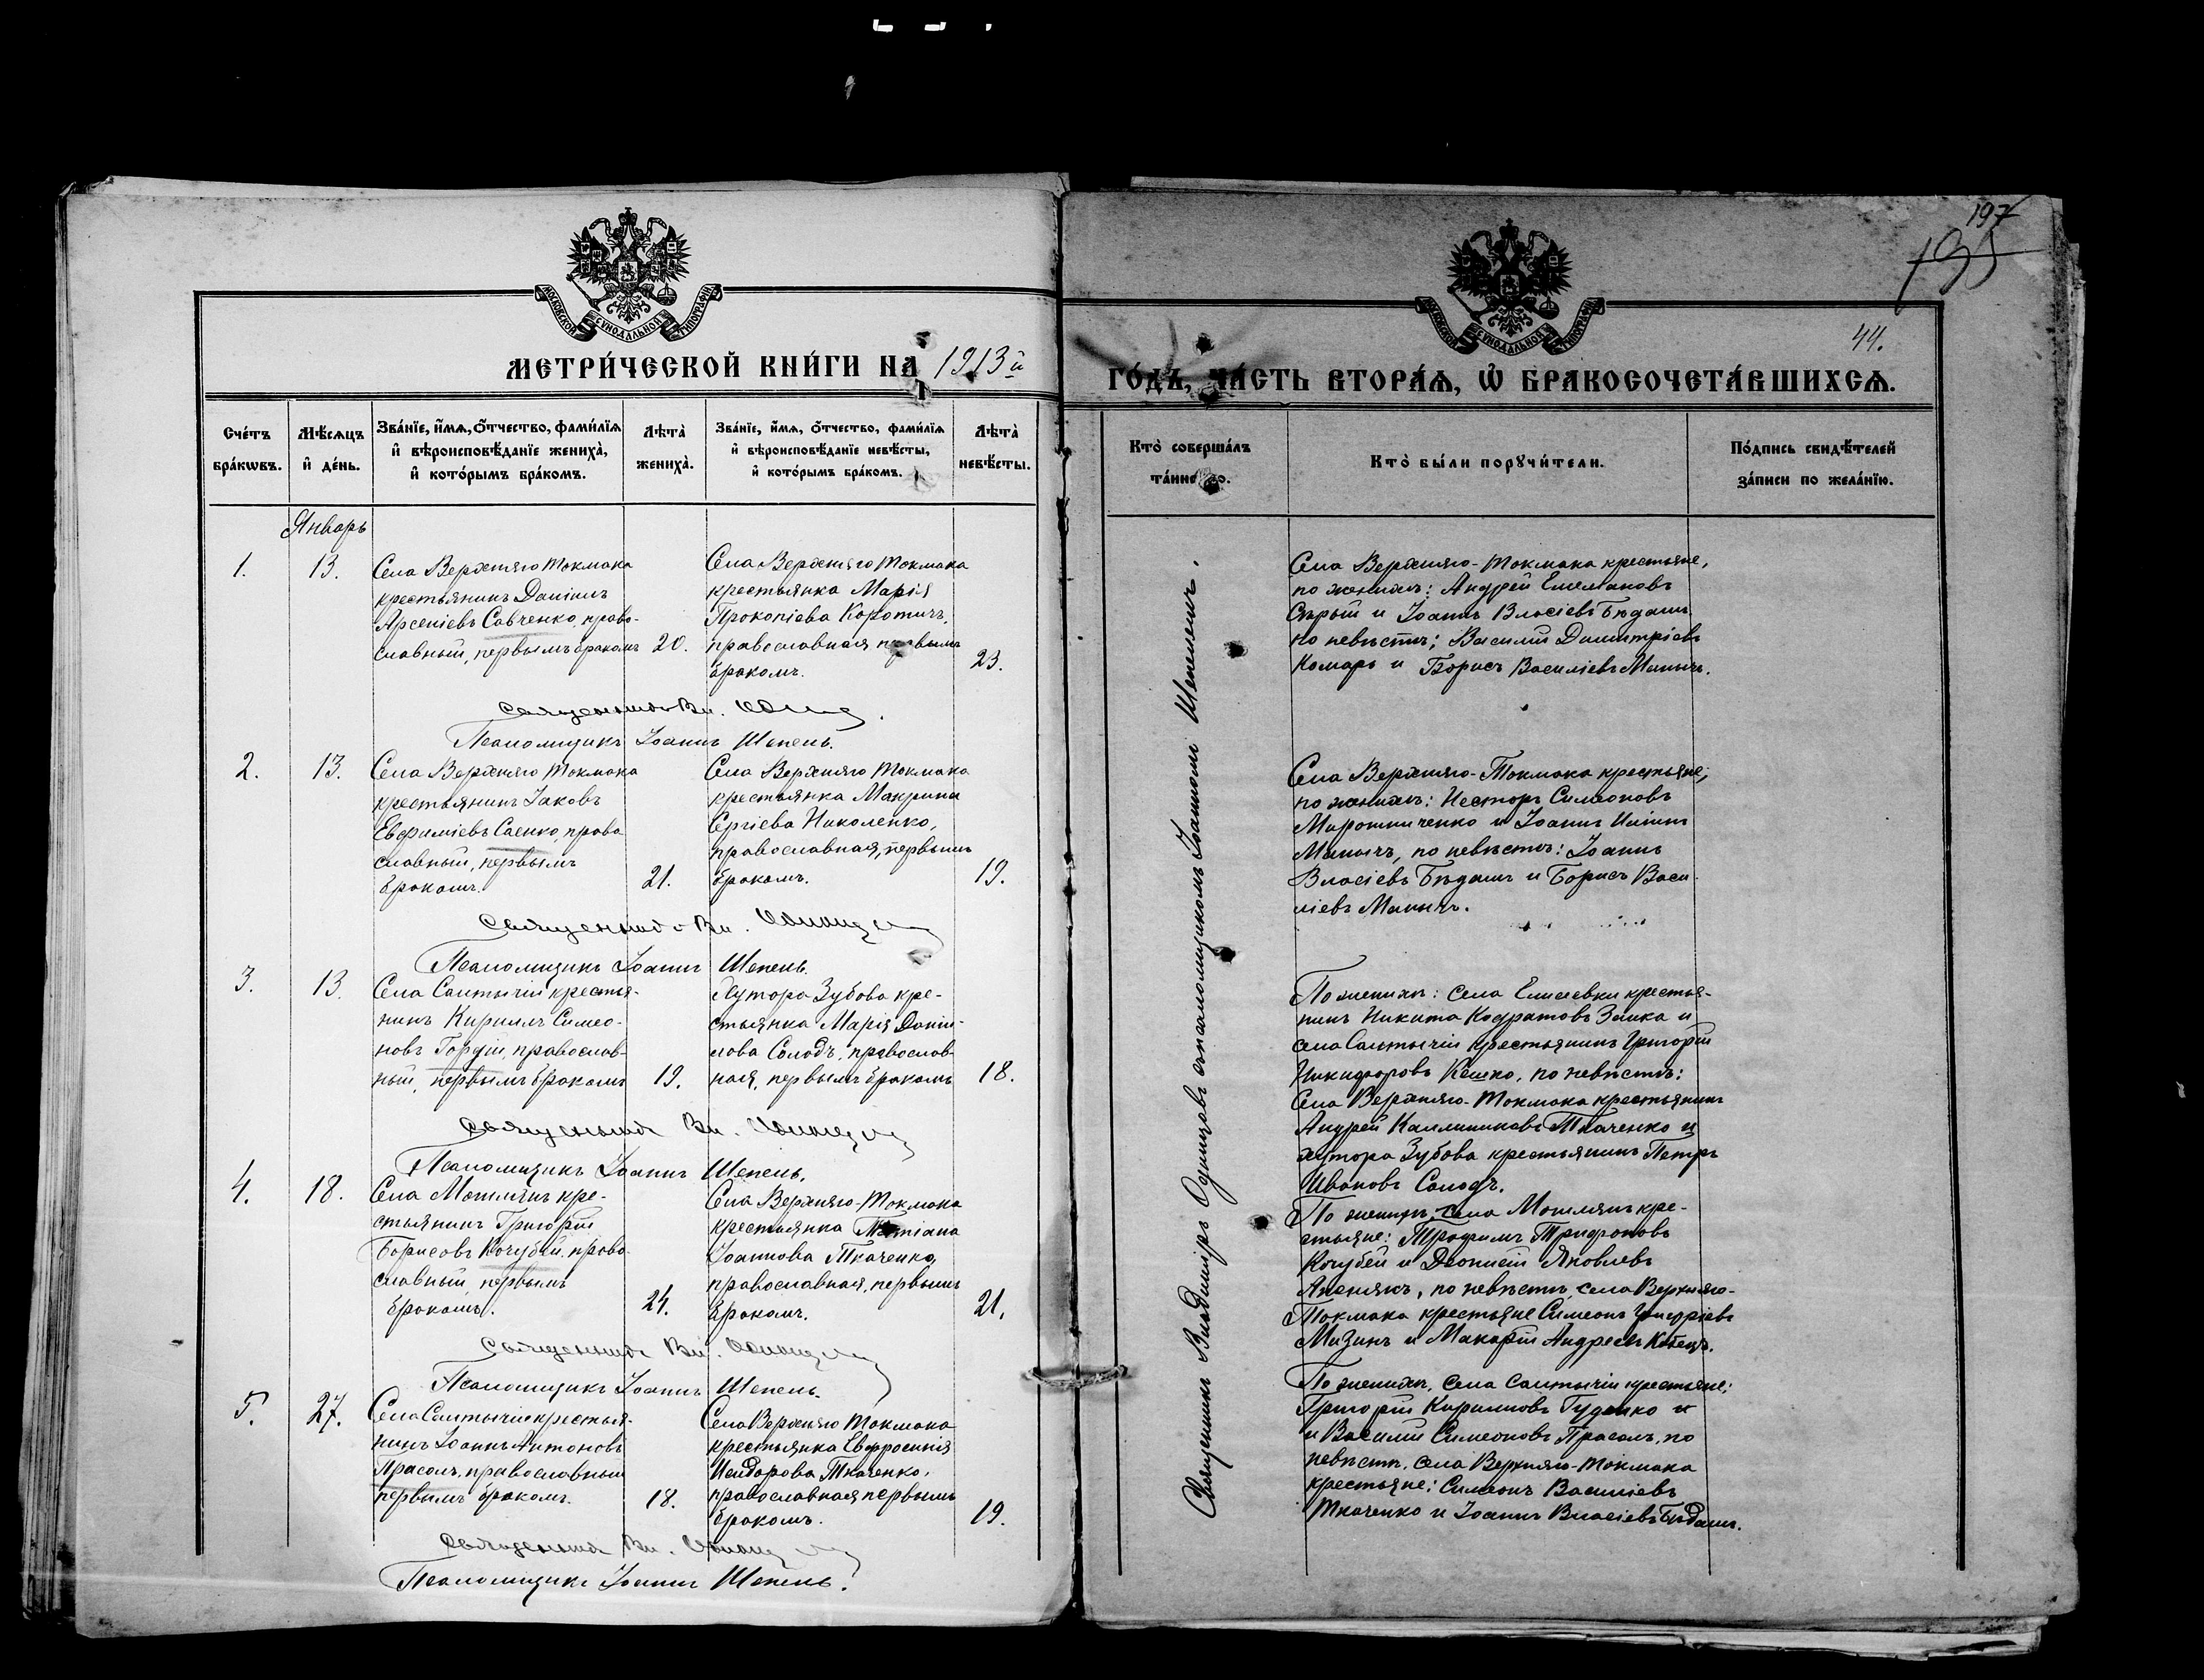 197
135
44.
МОСКОВСКОЙ СѴНОДАЛЬНОЙ ТИПОГРАФІИ
МЕТРИ́ЧЕСКОЙ КНИ́ГИ НА 1913й
Сче́тъ бра́кѡвъ.
Мѣ́сѧцъ и҆ де́нь.
Зва́нїе, и҆́мѧ, ѻ҆́тчество, фами́лїѧ и҆ вѣроисповѣ́данїе жениха̀, и҆ кото́рымъ бра́комъ.
Лѣта̀ жениха̀.
Зва́нїе, и҆́мѧ, ѻ҆́тчество, фами́лїѧ и҆ вѣроисповѣ́данїе невѣ́сты, и҆ кото́рымъ бра́комъ.
Лѣта̀ невѣ́сты.
Январь
1.
13.
Села Верхняго Токмака
крестьянинъ Даніилъ
Арсеніевъ Савченко, право-
славный, первымъ бракомъ
20.
Села Верхняго Токмака
крестьянка Марія
Прокопіева Коротичъ,
православная первымъ
бракомъ.
23.
Священникъ Вл.
Псаломщикъ Іоаннъ Шепель.
2.
13.
Села Верхняго Токмака
крестьянинъ Іаковъ
Евфиміевъ Саенко, право
славный, первымъ
бракомъ.
21.
Села Верхняго Токмака
крестьянка Макрина
Сергіева Николенко,
православная, первымъ
бракомъ.
19.
Священникъ Вл.
Псаломщикъ Іоаннъ Шепель.
3.
13.
Села Салтычіи крестья-
нинъ Кириллъ Симео-
новъ Гордій, православ-
ный, первымъ бракомъ
19.
Хутора Зубова кре-
стьянка Марія Даніи-
лова Солодъ, православ-
ная, первымъ бракомъ
18.
Священникъ Вл.
Псаломщикъ Іоаннъ Шепель.
4.
18.
Села Могилянъ кре-
стьянинъ Григорій
Борисовъ Кочубей, право-
славный, первымъ
бракомъ.
24.
Села Верхняго-Токмака
крестьянка Татіана
Іоаннова Ткаченко,
православная, первымъ
бракомъ.
21.
Священникъ Вл.
Псаломщикъ Іоаннъ Шепель.
5.
27.
Села Салтычіи крестья-
нинъ Іоаннъ Антоновъ
Прасолъ, православный
первымъ бракомъ.
18.
Села Верхняго Токмака
крестьянка Евфросинія
Исидорова Ткаченко,
православная первымъ
бракомъ.
19.
Священникъ Вл.
Псаломщикъ Іоаннъ Шепель.
МОСКОВСКОЙ СѴНОДАЛЬНОЙ ТИПОГРАФІИ
ГО́ДЪ, ЧА́СТЬ ВТОРА́Ѧ, Ѽ БРАКОСОЧЕТА́ВШИХСѦ.
Кто̀ соверша́лъ
Кто̀ бы́ли порꙋчи́тели.
По́дпись свидѣ́телей за́писи по жела́нїю.
Священникъ Владиміръ Одинцовъ съ псаломщикомъ Іоанномъ Шепелемъ.
Села Верхняго-Токмака крестьяне,
по женихѣ: Андрей Емеліановъ
Сѣрый и Іоаннъ Власіевъ Бѣданъ
по невѣстѣ: Василій Димитріевъ
Комаръ и Борисъ Василіевъ Манычъ.
Села Верхняго-Токмака крестьяне;
по женихѣ: Несторъ Симеоновъ
Мирошниченко и Іоаннъ Иліинъ
Манычъ, по невѣстѣ: Іоаннъ
Власіевъ Бѣданъ и Борисъ Васи-
ліевъ Манычъ.
По женихѣ: села Елисеевки крестья-
нинъ Никита Кодратовъ Заика и
села Салтычіи крестьянинъ Григорій
Никифоровъ Кешко, по невѣстѣ:
Села Верхняго-Токмака крестьянинъ
Андрей Каллиниковъ Ткаченко и
хутора Зубова крестьянинъ Петръ
Ивановъ Солодъ.
По женихѣ, села Могилянъ кре-
стьяне: Трофимъ Трифоновъ
Кочубей и Діонисій Яковлевъ
по невѣстѣ, села Верхняго-
Токмака крестьяне Симеонъ
Мизинъ и Макарій Андреевъ
По женихѣ, села Салтычіи крестьяне:
Григорій Кирилловъ Гуденко и
и Василій Симеоновъ Прасолъ, по
невѣстѣ, села Верхняго-Токмака
крестьяне: Симеонъ Василіевъ
Ткаченко и Іоаннъ Власіевъ Бѣданъ.